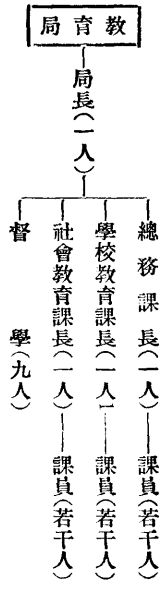 教育局
局長(一人)
總務課長(一人)——課員(若干人)
學校教育課長(一人)——課員(若干人)
社會教育課長(一人)——課員(若干人)
督學(九人)